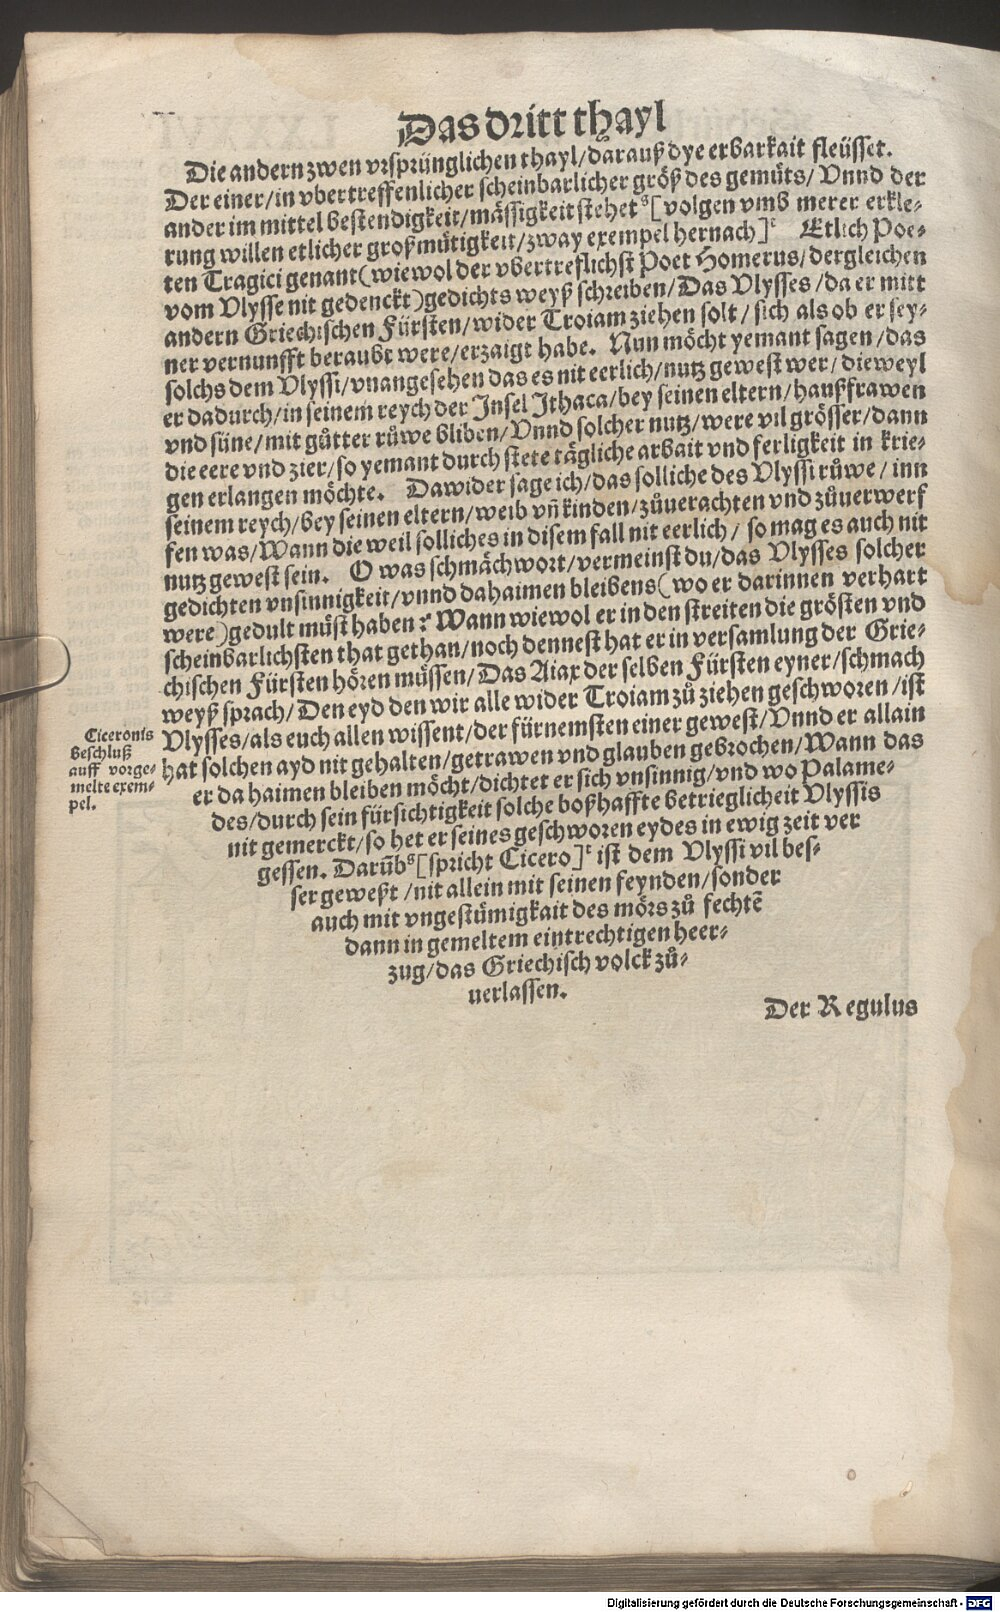 Das dritt thayl
Die andern zwen vrsprünglichen thayl/darauß dye erbarkait fleüsset.
Der einer/in vbertreffenlicher scheinbarlicher größ des gemüts/Vnnd der
ander im mittel bestendigkeit/mässigkeit stehet [volgen vmb merer erkle⸗
rung willen etlicher großmütigkeit/zway exempel hernach] Etlich Poe⸗
ten Tragici genant(wiewol der vbertreflichst Poet Homerus/dergleichen
vom Vlysse nit gedenckt)gedichts weyß schreiben/Das Vlysses/da er mitt
andern Griechischen Fürsten/wider Troiam ziehen solt/sich als ob er sey⸗
ner vernunfft beraubt were/erzaigt habe. Nun möcht yemant sagen/das
solchs dem Vlyssi/vnangesehen das es nit eerlich/nutz gewest wer/dieweyl
er dadurch/in seinem reych der Insel Ithaca/bey seinen eltern/haußfrawen
vnd süne/mit gůtter růwe bliben/Vnnd solcher nutz/were vil grösser/dann
die eere vnd zier/so yemant durch stete tägliche arbait vnd ferligkeit in krie⸗
gen erlangen möchte. Dawider sage ich/das solliche des Vlyssi růwe/inn
seinem reych/bey seinen eltern/weib vñ kinden/zůuerachten vnd zůuerwerf
fen was/Wann die weil solliches in disem fall nit eerlich/so mag es auch nit
nutz gewest sein. O was schmächwort/vermeinst du/das Vlysses solcher
gedichten vnsinnigkeit/vnnd dahaimen bleibens(wo er darinnen verhart
were)gedult müst haben? Wann wiewol er in den streiten die grösten vnd
scheinbarlichsten that gethan/noch dennest hat er in versamlung der Grie⸗
chischen Fürsten hören müssen/Das Aiax der selben Fürsten eyner/schmach
weyß sprach/Den eyd den wir alle wider Troiam zů ziehen geschworen/ist
Vlysses/als euch allen wissent/der fürnemsten einer gewest/Vnnd er allain
hat solchen ayd nit gehalten/getrawen vnd glauben gebrochen/Wann das
er da haimen bleiben möcht/dichtet er sich vnsinnig/vnd wo Palame⸗
des/durch sein fürsichtigkeit solche boßhaffte betrieglicheit Vlyssis
nit gemerckt/so het er seines geschworen eydes in ewig zeit ver
gessen. Darüb [spricht Cicero] ist dem Vlyssi vil bes⸗
ser geweßt/nit allein mit seinen feynden/sonder
auch mit vngestümigkait des mörs zů fechtē
dann in gemeltem eintrechtigen heer⸗
zug/das Griechisch volck zů⸗
uerlassen.
Ciceronis
Beschluß
auff vorge⸗
melte exem⸗
pel.
Der Regulus
Digitalisierung gefördert durch die Deutsche Forschungsgemeinschaft - DFG